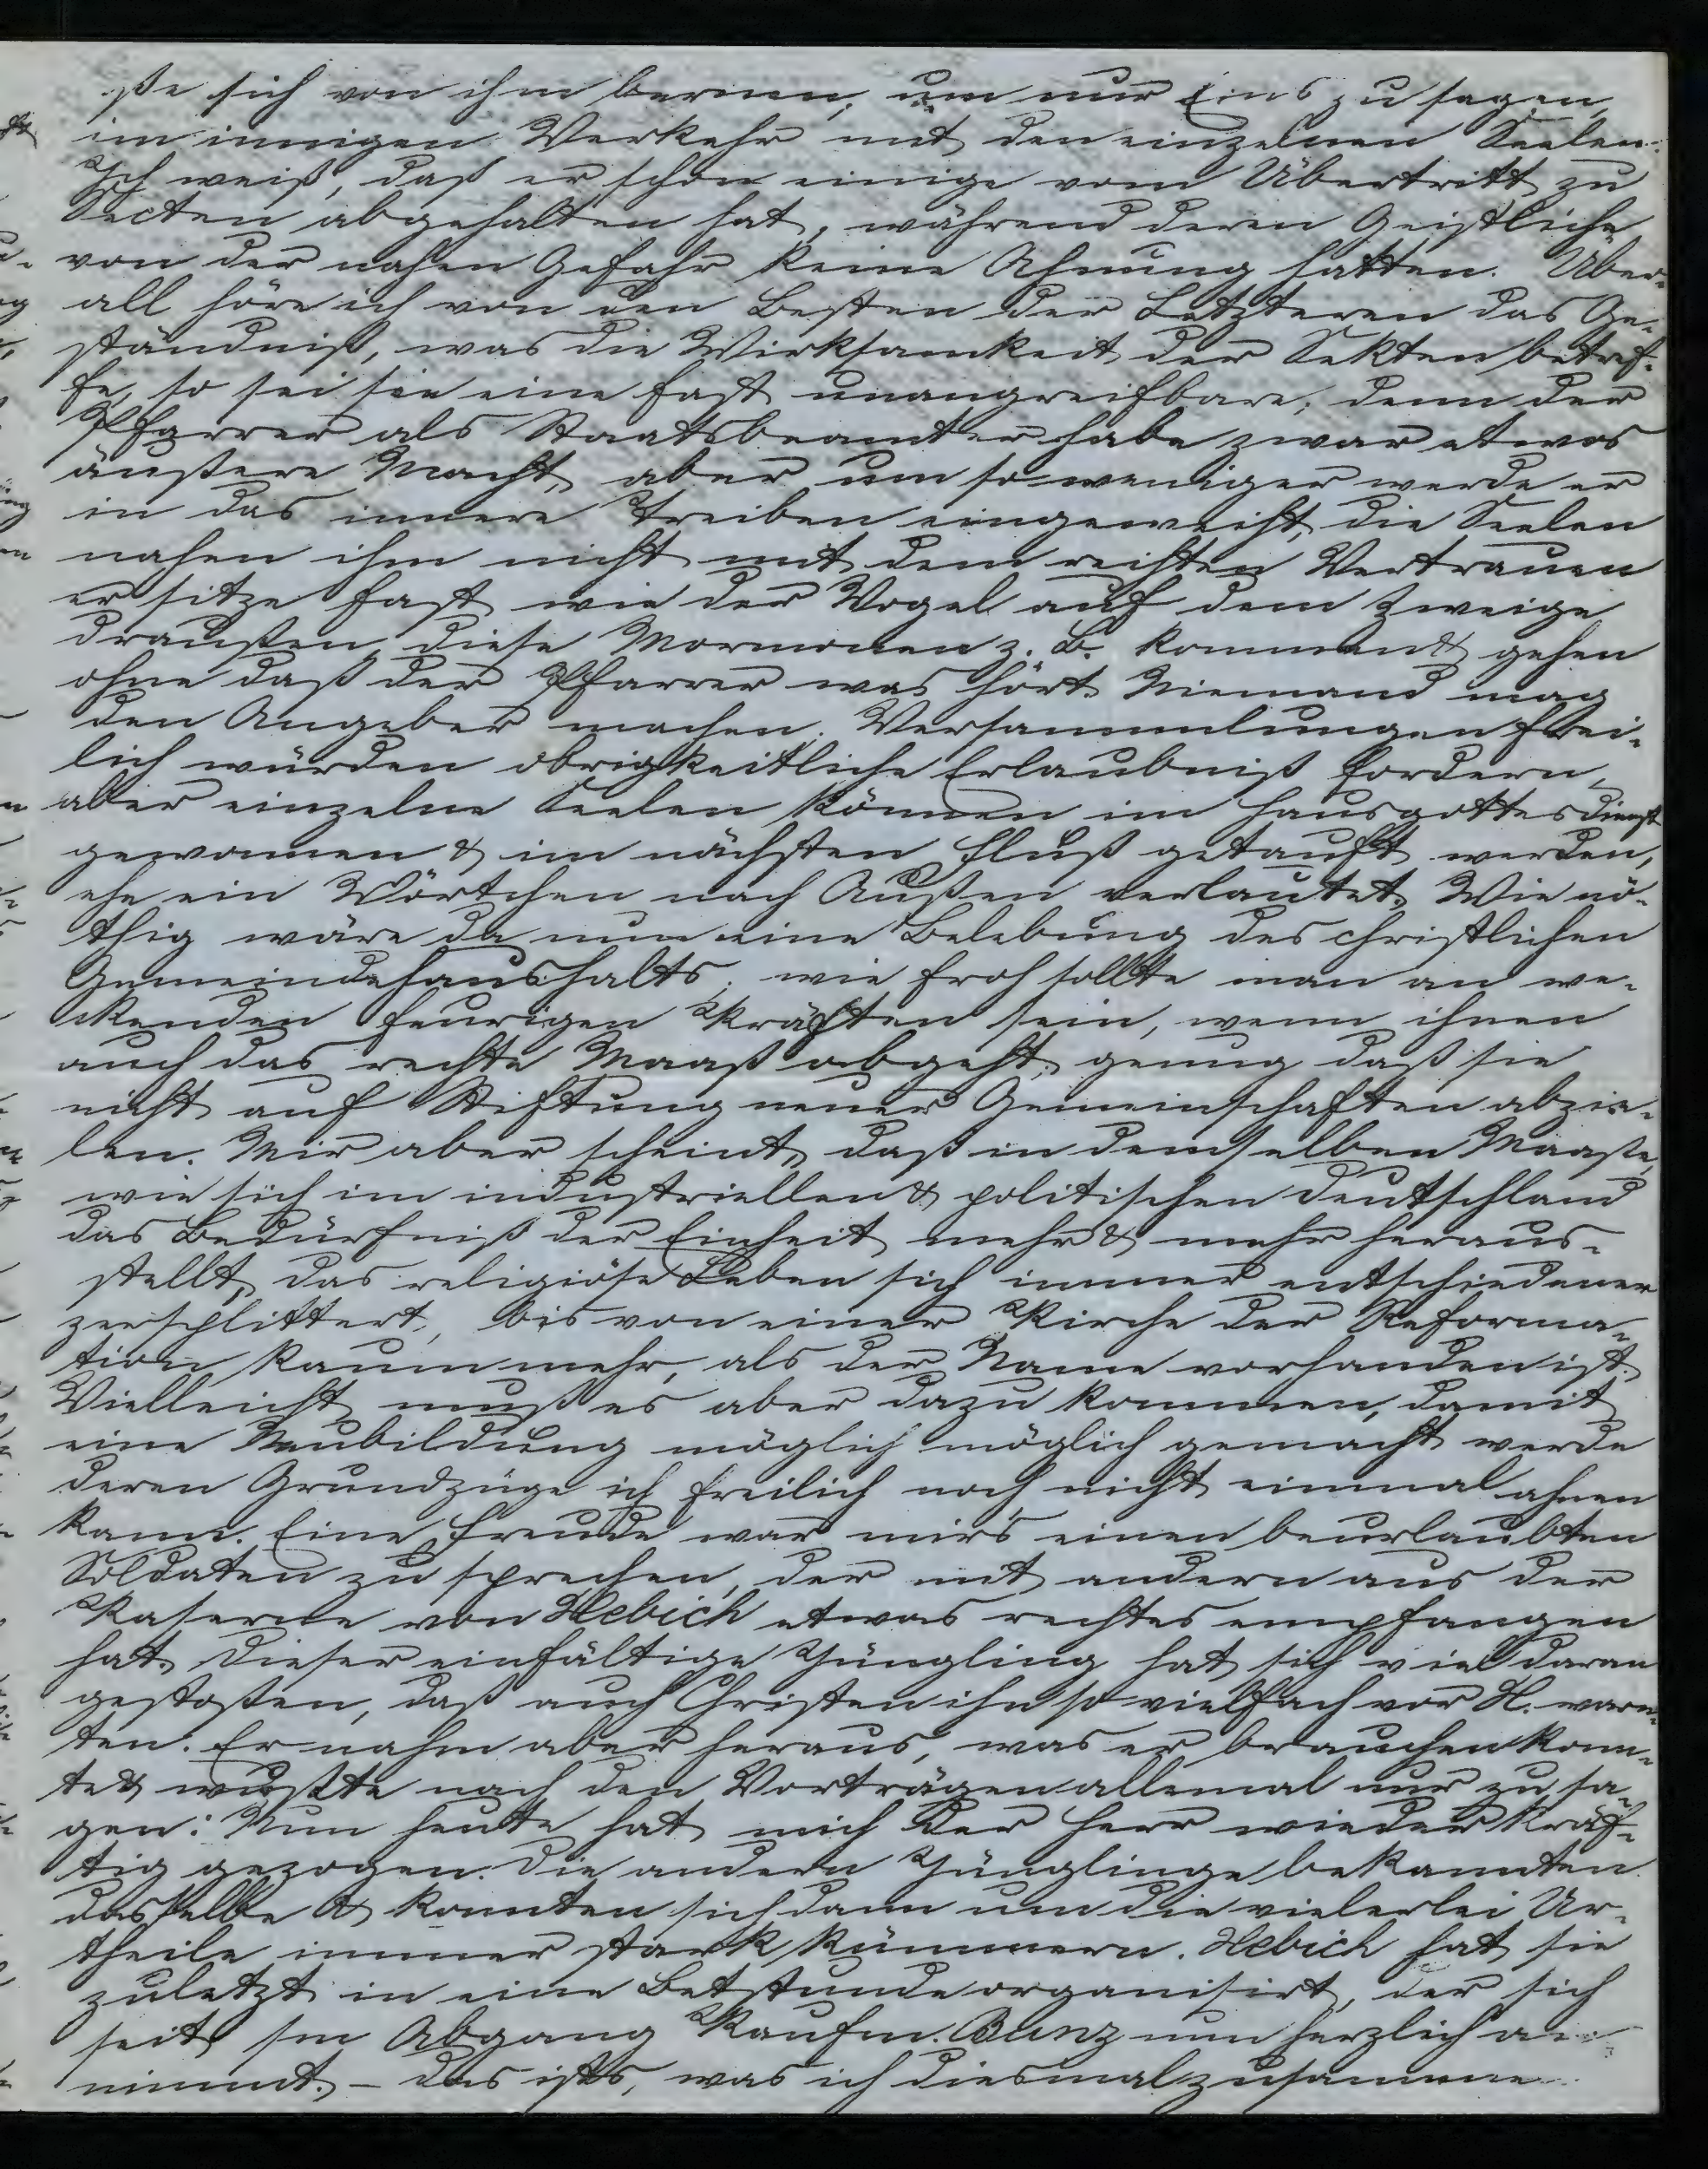 ße sich von ihm lernen, um nur Eins zu sagen,
im innigen Verkehr mit den einzelnen Seelen.
Ich weiß, daß er schon einige vom Übertritt zu
Secten abgehalten hat, während deren Geistliche
von der nahen Gefahr keine Ahnung hatten. Über-
all höre ich von den Besten der Letzteren das Ge-
ständniß, was die Wirksamkeit der Sekten betref-
fe, so sei sie eine fast unangreifbare; denn der
Pfarrer als Staatsbeamter habe zwar etwas
äußere Macht, aber um so weniger werde er
in das innere Treiben eingeweiht, die Seelen
nahen ihm nicht mit dem rechten Vertrauen
er sitze fast wie der Vogel auf dem Zweige
draußen, diese Mormonen z. B. kommen & gehen
ohne daß der Pfarrer was hört. Niemand mag
den Angeber machen. Versammlungen frei-
lich würden obrigkeitliche Erlaubniß fordern,
aber einzelne Seelen können im Hausgottesdienst
gewonnen & im nächsten Fluß getauft werden,
ehe ein Wörtchen nach Außen verlautet. Wie nö-
thig wäre da nun eine Belebung des christlichen
Gemeindehaushalts, wie froh sollte man an we-
ckenden feurigen Kräften sein, wenn ihnen
auch das rechte Maaß abgeht, genug daß sie
nicht auf Stiftung neuer Gemeinschaften abzie-
len. Mir aber scheint, daß in demselben Maaße,
wie sich im industriellen & politischen Deutschland
das Bedürfniß der Einheit mehr & mehr heraus-
stellt, das religiöse Leben sich immer entschiedener
zersplittert, bis von einer Kirche der Reforma-
tion kaum mehr, als der Name vorhanden ist.
Vielleicht muß es aber dazu kommen, damit
eine Neubildung möglich möglich gemacht werde
deren Grundzüge ich freilich noch nicht einmal ahnen
kann. Eine Freude war mir's einen beurlaubten
Soldaten zu sprechen, der mit andern aus der
Kaserne von Hebich etwas rechtes empfangen
hat. Dieser einfältige Jüngling hat sich viel daran
gestoßen, daß auch Christen ihn so vielfach vor H. warn-
ten. Er nahm aber heraus, was er brauchen konn-
te & wußte nach den Vorträgen allemal nur zu sa-
gen: Nun heute hat mich der Herr wieder kräf-
tig gezogen. Die andern Jünglinge bekannten
dasselbe & konnten sich dann um die vielerlei Ur-
theile immer stark kümmern. Hebich hat sie
zuletzt in eine Betstunde organisirt, der sich
seit sm Abgang Kaufm. Bunz nun herzlich an-
nimmt. – Das ists, was ich diesmal zusammen